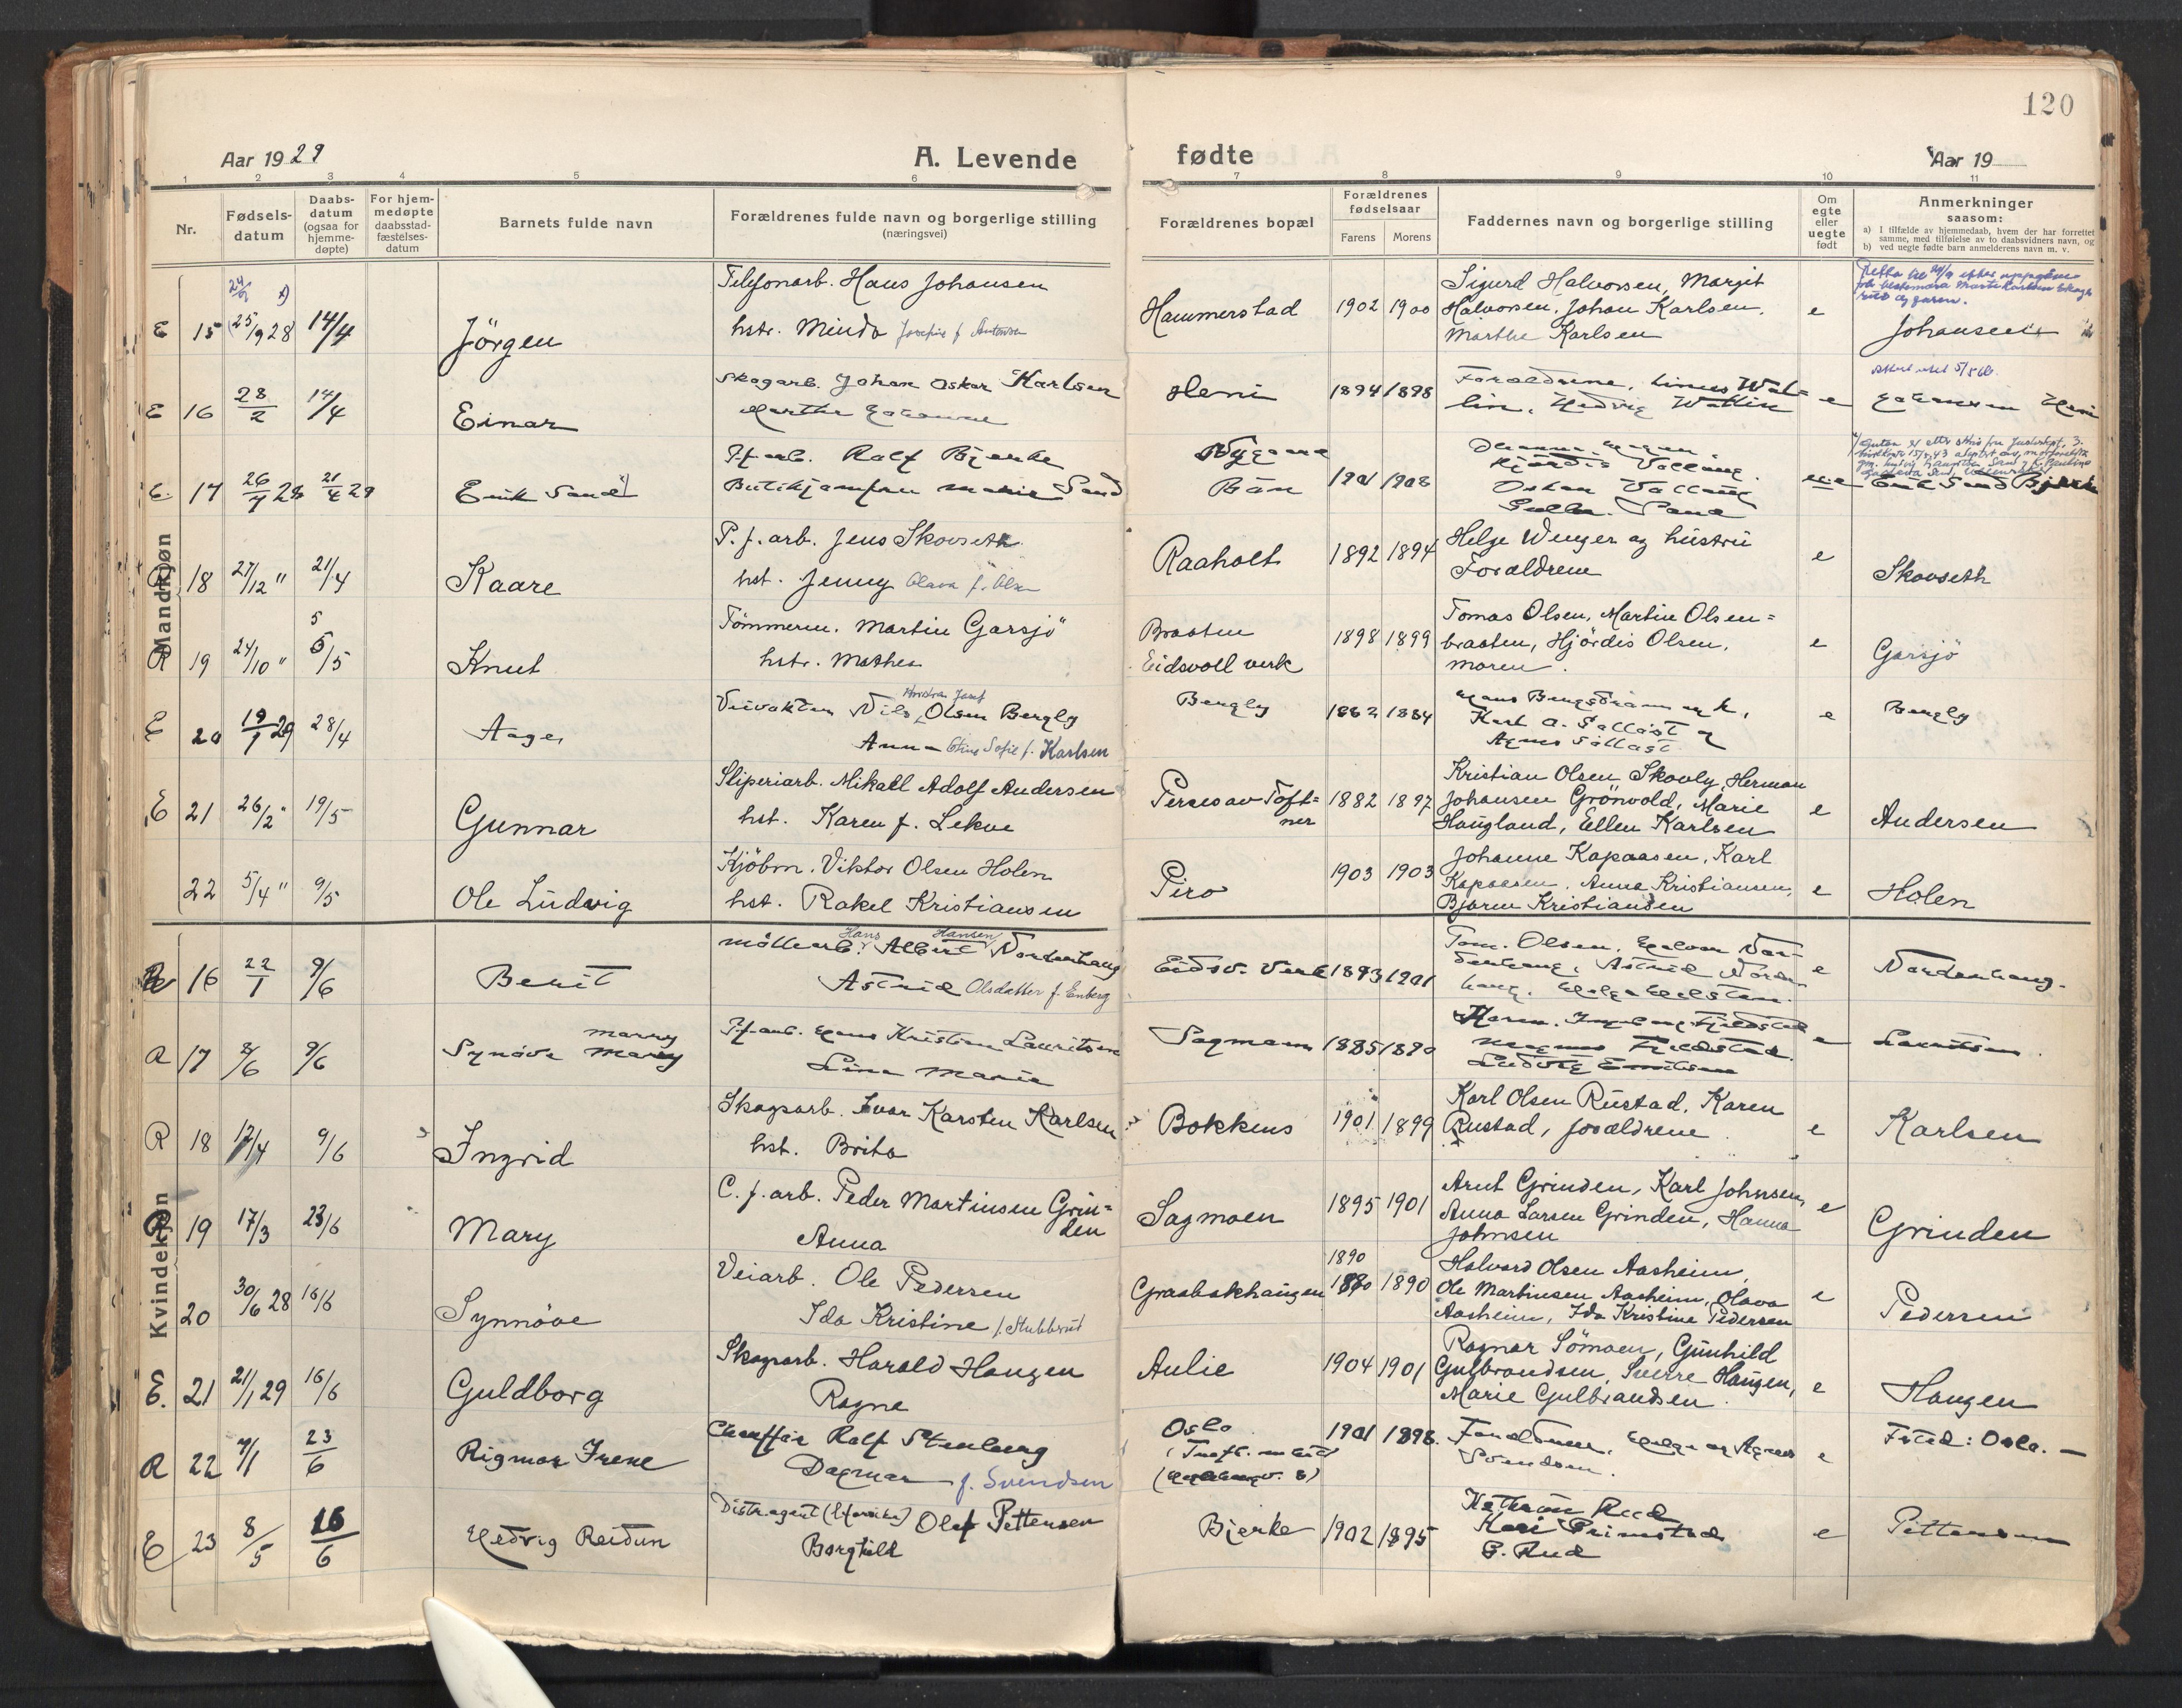 120
Aar 1929 A. Levende
fødte Aar 19
1 2 3 4 5 6
7 8 9 10 11
Nr.
Fødsels-
datum
Daabs-
datum
(ogsaa for
hjemme-
døpte)
For hjem-
medøpte
daabsstad-
fæstelses-
datum
Barnets fulde navn
Forældrenes fulde navn og borgerlige stilling
(næringsvei)
Forældrenes bopæl
Forældrenes
fødselsaar
Farens Morens
Faddernes navn og borgerlige stilling
Om
egte
eller
uegte
født
Anmerkninger
saasom:
a) I tilfælde av hjemmedaab, hvem der har forrettet
samme, med tilføielse av to daabsvidners navn, og
b) ved uegte fødte barn anmelderens navn m. v.
Mandkjøn
E 15 25/9 28 14/4 Jörgen
Telefonarb. Hans Johansen
hstr. Minda Josefine f. Antonsen
Hammerstad 1902 1900
Sigurd Halvorsen, Margit
Halvorsen, Johan Karlsen,
Marthe Karlsen
e Johansen
E 16 28/2 14/4 Einar
Skogarb. Johan Oskar Karlsen
Marthe
Heni 1894 1898
Forældrene, Linus Wal=
lin, Hedvig Wallin
e
E. 17 26/7 28 21/4 29 Erik Sand
P.f.arb. Ralf Bjerke
Butikjomfru Marie Sand
Nygaard
Bön 1901 1908
Hjördis Vallaug
Oskar Vallaug
Sand
Erik Sand Bjerke
R 18 27/12 " 21/4 Kaare
P. f. arb. Jens Skovseth
hst. Jenny Olava f. Olsen
Raaholt 1892 1894
Helge Wenger og hustru
Forældrene
e Skovseth
R 19 24/10 " 5/5 Knut
Tömmerm. Martin Garsjö
hstr. Mathea
Braaten
Eidsvoll verk 1898 1899
Tomas Olsen, Martin Olsen=
braaten, Hjördis Olsen,
moren.
e Garsjö
E 20 19/1 29 28/4 Aage
Veivokter Nils Olsen Bergly
Anna Sofie f. Karlsen
Bergly 1882 1884
Karl A. Sallast og
Agnes Sallast
e Bergly
E 21 26/2 " 19/5 Gunnar
Sliperiarb. Mikall Adolf Andersen
hst. Karen f. Lekve
1882 1897
Kristian Olsen Skovly, Herman
Johansen Grönvold, Marie
Haugland, Ellen Karlsen
e Andersen
22 5/4 " 9/5 Ole Ludvig
Kjöbm. Viktor Olsen Holen
hst. Rakel Kristiansen
Piro 1903 1903
Johanne Kapaasen, Karl
Kapaasen, Anna Kristiansen,
Bjarne Kristiansen
e Holen
Kvindekjøn
R 16 22/1 9/6 Berit
Hans Hansen
Möllearb. Albert Nordenhaug
Astrid Olsdatter f. Enberg
Eidsv. Verk 1893 1901
Tom. Olsen,
Astrid
e Nordenhaug.
R 17 8/6 9/6 Synöve Marry
P.f.arb. Hans Kristian Lauritsen
Lina Marie
Sagmoen 1885 1890
Karen. Ingeborg Fjeldstad
Magnus Fjeldstad.
Ludvig
e Lauritsen.
R 18 12/4 9/6 Ingrid
Skogsarb. Ivar Karsten Karlsen
hst. Brita
Bokkens 1901 1899
Karl Olsen Rustad, Karen
Rustad, forældrene.
e Karlsen
R 19 17/3 23/6 Mary
C. f. arb. Peder Martinsen Grin=
den
Anna
Sagmoen 1895 1901
Arnt Grinden, Karl Johnsen,
Anna Larsen Grinden, Hanna
Johnsen
e Grinden
20 30/6 28 16/6 Synnöve
Veiarb. Ole Pedersen
Ida Kristine f. Stubberud
1890
Graabækhaugen 1890
Halvard Olsen Aasheim,
Ole Martinsen Aasheim, Olava
Aasheim, Ida Kristine Pedersen
e Pedersen
E. 21 21/1 29 16/6 Guldborg
Skogsarb. Harald Haugen
Ragna
Aulie 1904 1901
Ragnar Sömoen, Gunhild
Gulbrandsen, Sverre Haugen,
Marie Gulbrandsen.
e Haugen
R 22 7/1 23/6 Rigmor Irene
Chauffør Ralf Stenberg
Dagmar f. Svendsen
Oslo
1901 1898.
Forældrene, Helge og Agnes
Svendsen.
e Föted: Oslo. —
E 23 8/5 16/6 Hedvig Reidun
Distr.agent Olaf Pettersen
Borghild
Bjerke 1902 1895
Kathrine Rud
Kari Grimstad
G. Rud
e Pettersen